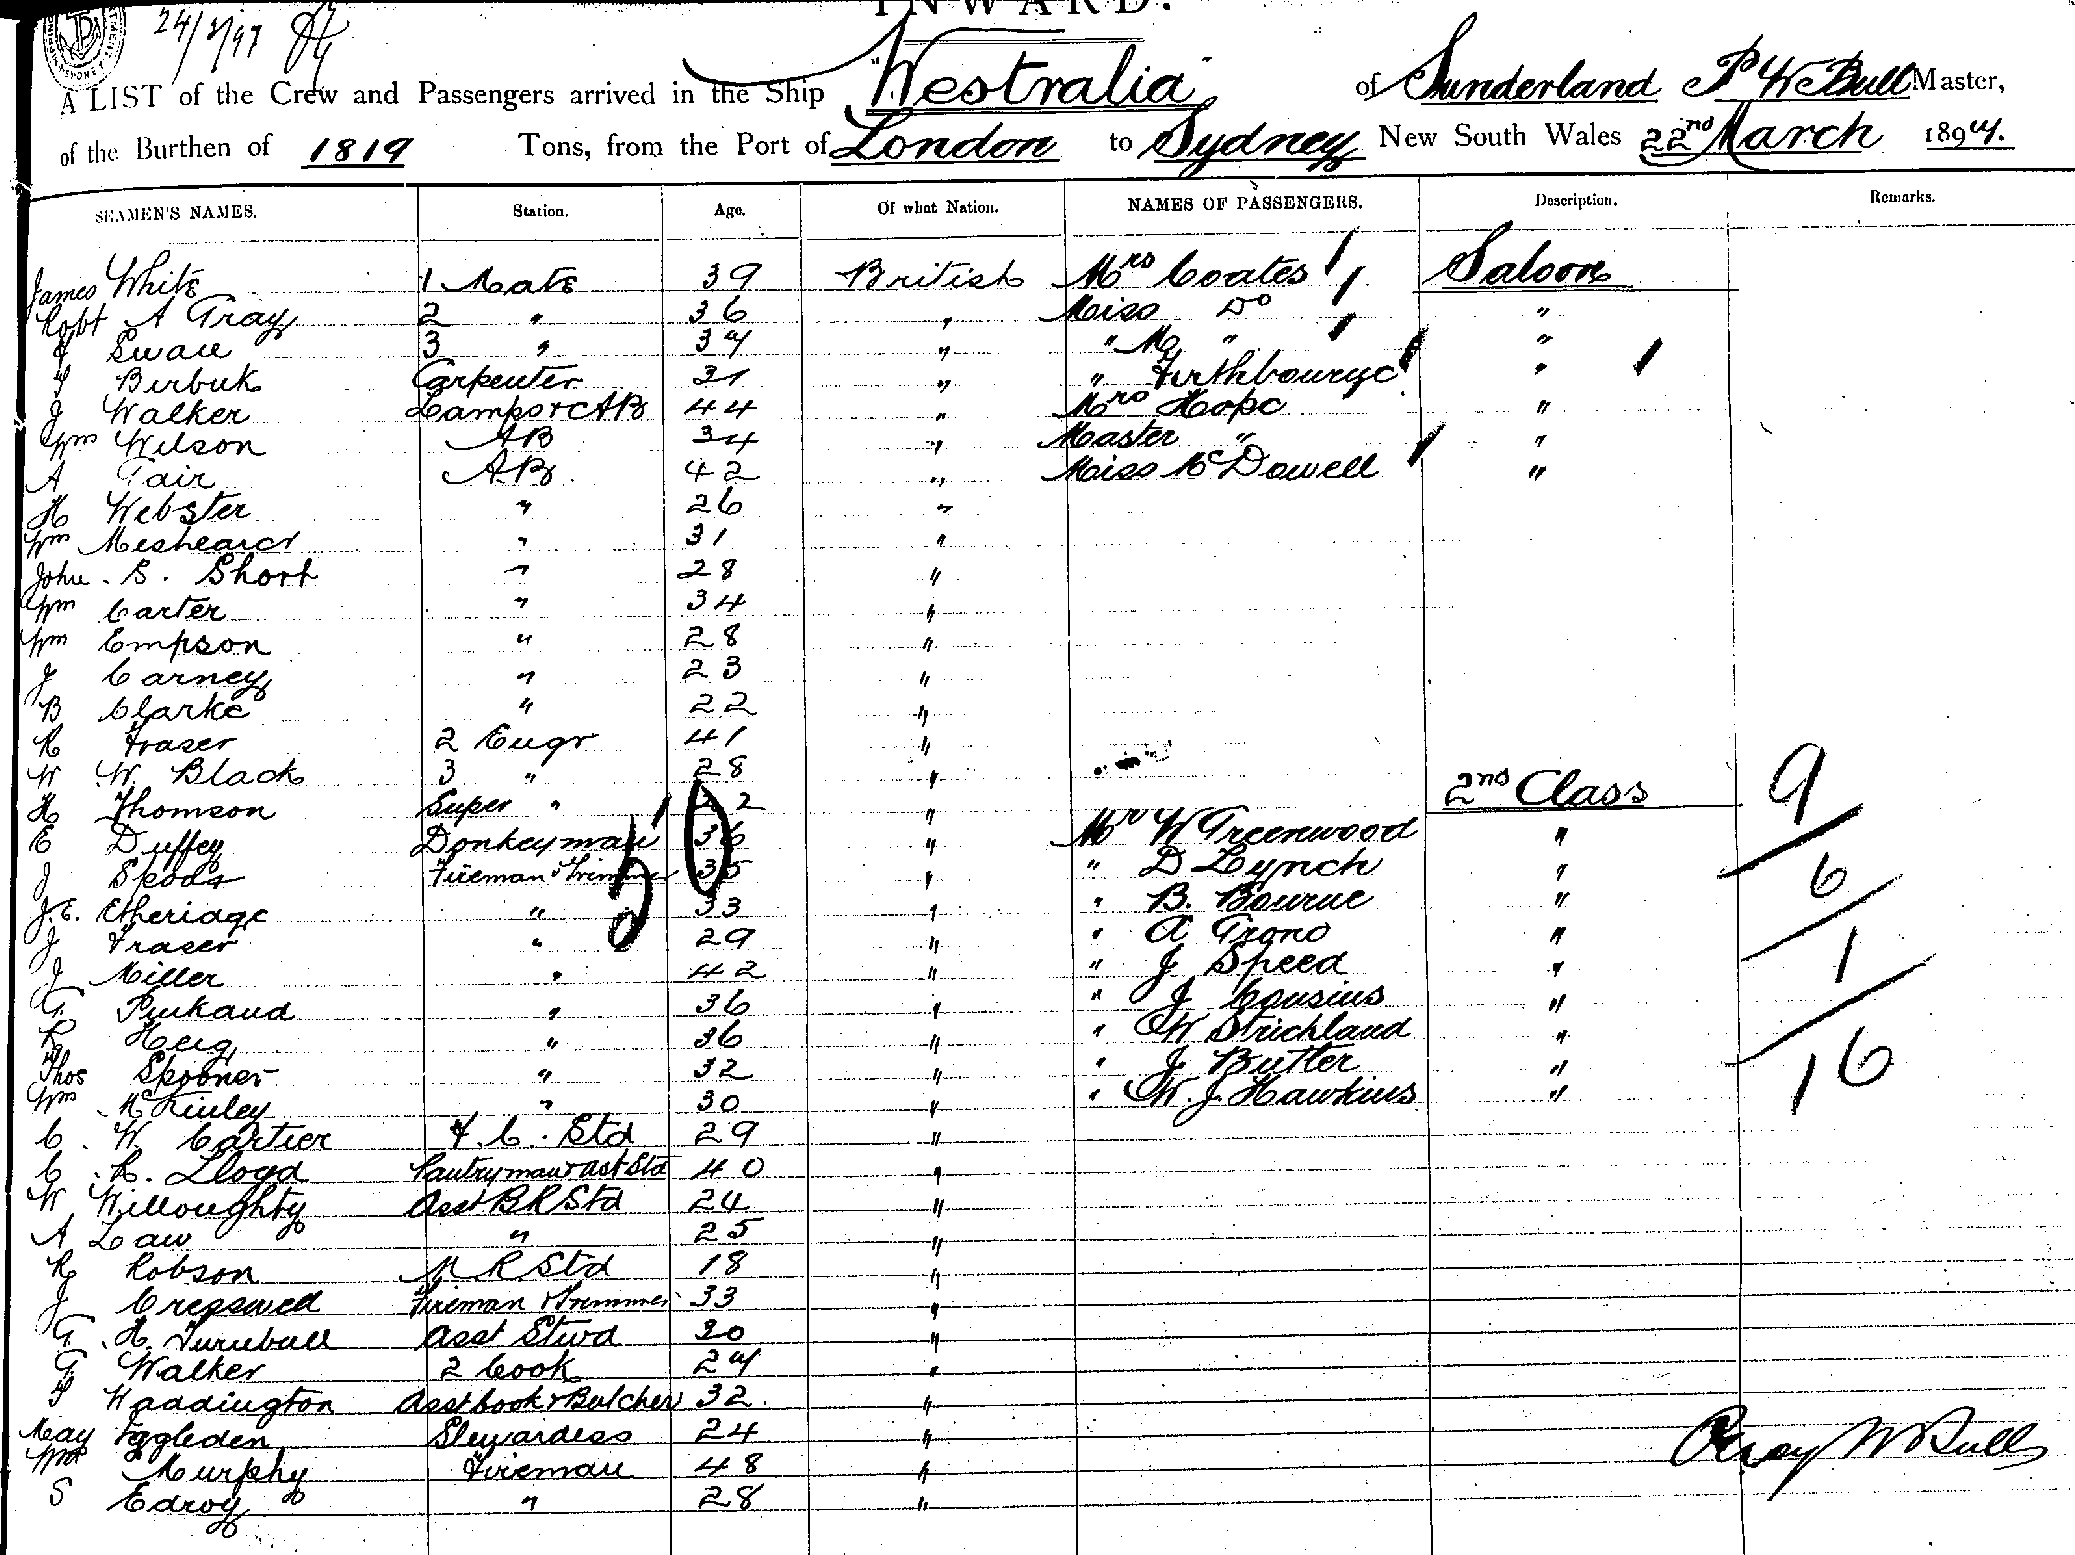 24/3/97
INWARD.
A LIST of the Crew and Passengers arrived in the Ship "Westralia" of Sunderland P W Bull Master,
of the Burthen of 1819 Tons, from the Port of London to Sydney New South Wales 22nd March 1894.
SEAMEN'S NAMES. Station. Age. Of what Nation. NAMES OF PASSENGERS. Description. Remarks.
James White 1 Mate 39 British Mrs Coates Saloon
Robt A Gray 2 " 36 " Miss Do "
Swan 3 " 34 " " M " "
Birbuk Carpenter 31 " " "
J Walker Lamps & AB 44 " Mrs Hope "
Wm Wilson AB 34 " Master " "
A Tair AB 42 " Miss McDowell "
H Webster " 26 "
Wm " 31 "
John S. Short " 28 "
Wm Carter " 34 "
Wm Empson " 28 "
J Carney " 23 "
B Clarke " 22 "
R Fraser 2 Engr 41 "
W W. Black 3 " 28 "
2nd Class 9
H Thomson Super " "
E Duffey Donkeyman 36 " Mr W Greenwood "
J Fireman & Trimmer 35 " " D Lynch " 6
J.E. Etheridge " 33 " " B. Bourne "
J Fraser " 29 " " A Grono "
J Miller " 42 " " J Speed " 1
G. " 36 " " J Cousins "
R " 36 " " W Strickland "
Thos Spooner " 32 " " J Butler " 16
Wm McKinley " 30 " " W. J. Hawkins "
C. W. Cartier F. C. Std 29 "
C. R. Lloyd Pantryman & Ast Std 40 "
W Willoughby Asst B R Std 24 "
A Law " 25 "
R Robson M R Std 18 "
J Cresswell Fireman & Trimmer 33 "
G. H. Turnbull Asst Stwd 20 "
G Walker 2 Cook 24 "
Waddington Asst Cook & Butcher 32 "
May Eggleden Stewardess 24 "
Wm Murphy Fireman 48 "
S Edroy " 28 "
Percy W Bull